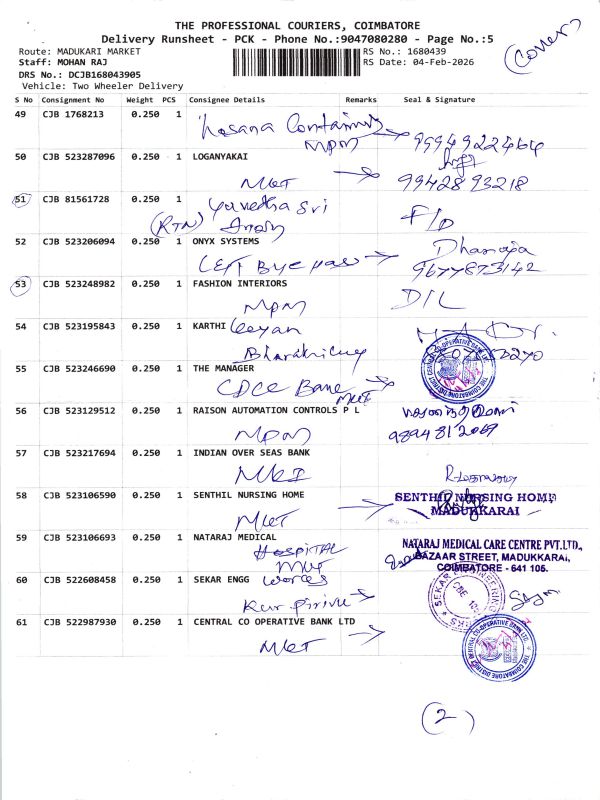 THE PROFESSIONAL COURIERS, COIMBATORE
Delivery Runsheet - PCK - Phone No.:9047080280 - Page No.:5
(Cover)
Route: MADUKARI MARKET
RS No.: 1680439
Staff: MOHAN RAJ
RS Date: 04-Feb-2026
DRS No.: DCJB168043905
Vehicle: Two Wheeler Delivery
S No Consignment No Weight PCS Consignee Details Remarks Seal & Signature
49 CJB 1768213 0.250 1 Hosana Containers
MPM 9994922464
50 CJB 523287096 0.250 1 LOGANYAKAI
MKT 9942893218
51 CJB 81561728 0.250 1 Sri F/D
(RTN)
52 CJB 523206094 0.250 1 ONYX SYSTEMS
L&T Bye pass 9677873142
53 CJB 523248982 0.250 1 FASHION INTERIORS
MPM D/L
54 CJB 523195843 0.250 1 KARTHI keyan
55 CJB 523246690 0.250 1 THE MANAGER
CDCC Bank MKT
THE COIMBATORE DISTRICT CENTRAL CO-OPERATIVE BANK LTD.
56 CJB 523129512 0.250 1 RAISON AUTOMATION CONTROLS P L
MPM
57 CJB 523217694 0.250 1 INDIAN OVER SEAS BANK
MKT
58 CJB 523106590 0.250 1 SENTHIL NURSING HOME
MKT
SENTHIL NURSING HOME
MADUKKARAI
59 CJB 523106693 0.250 1 NATARAJ MEDICAL
HOSPITAL
MKT
NATARAJ MEDICAL CARE CENTRE PVT.LTD.,
BAZAAR STREET, MADUKKARAI,
COIMBATORE - 641 105.
60 CJB 522608458 0.250 1 SEKAR ENGG works
SEKAR ENGINEERING WORKS
61 CJB 522987930 0.250 1 CENTRAL CO OPERATIVE BANK LTD
MKT
THE COIMBATORE DISTRICT CENTRAL CO-OPERATIVE BANK LTD.
(2)